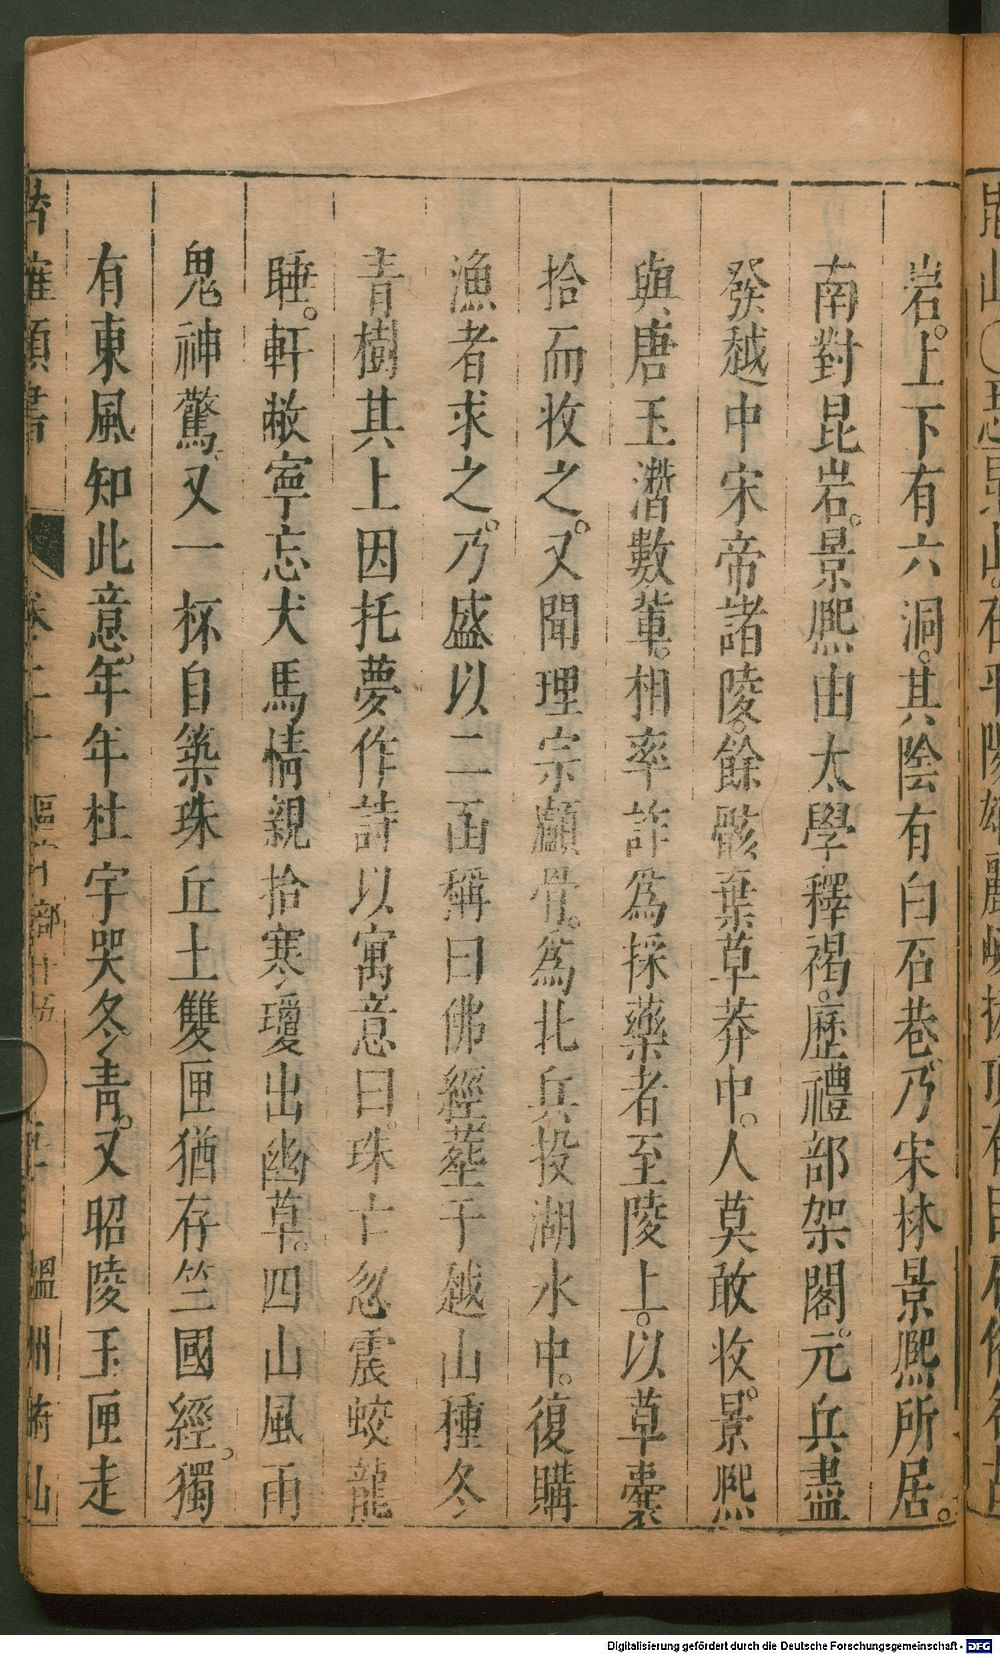 岩。上下有六洞。其陰有白石巷。乃宋林景熙所居。
南對昆岩。景熙由太學釋褐。歷禮部架閣。元兵盡
發越中宋帝諸陵。餘骸棄草莽中。人莫敢收。景熙
與唐玉潛數輩。相率詐為採藥者至陵上。以草囊
拾而收之。又聞理宗顱骨。為北兵投湖水中。復購
漁者求之。乃盛以二函稱曰佛經葬于越山種冬
青樹其上因托夢作詩以寓意曰。珠亡忽震蛟龍
睡。軒敝寧忘犬馬情親拾寒瓊出幽草。四山風雨
鬼神驚。又一杯自築珠丘土雙匣猶存竺國經。獨
有東風知此意。年年杜宇哭冬青。又昭陵玉匣走
卷二十 區 部廿五 溫州府山
Digitalisierung gefördert durch die Deutsche Forschungsgemeinschaft - DFG